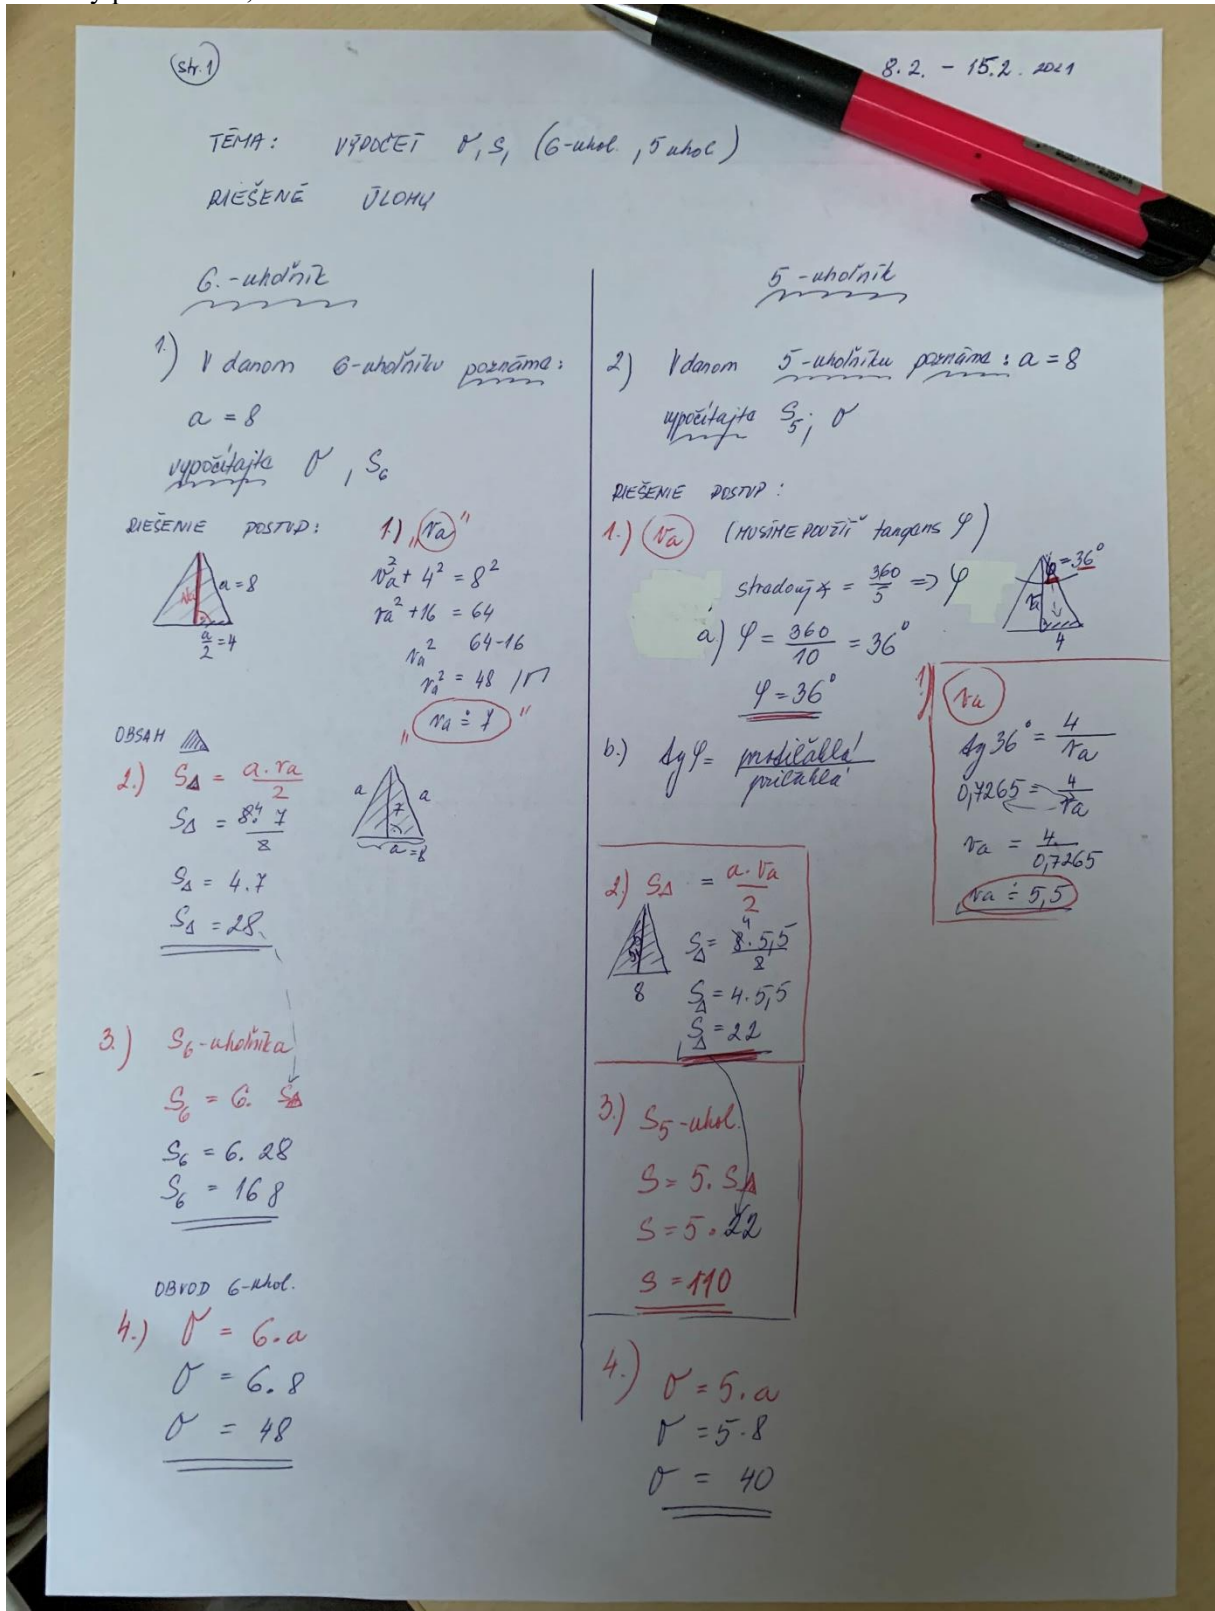 str. 1
8.2. - 15.2. 2021
TÉMA: VÝPOČET O, S, (6-uhol., 5 uhol)
RIEŠENÉ ÚLOHY
6.-uholník
1.) V danom 6-uholníku poznáme:
a = 8
vypočítajte O, S₆
RIEŠENIE POSTUP:
a = 8
va
a/2 = 4
1.) „va"
va² + 4² = 8²
va² + 16 = 64
va² 64-16
va² = 48 /√
„va ≐ 7"
OBSAH
2.) S△ = a.va/2
S△ = 8.7/2
4
S△ = 4.7
S△ = 28
a a
7
a = 8
3.) S₆-uholníka
S₆ = 6. S△
S₆ = 6. 28
S₆ = 168
OBVOD 6-uhol.
4.) O = 6.a
O = 6.8
O = 48
5-uholník
2) V danom 5-uholníku poznáme: a = 8
vypočítajte S₅; O
RIEŠENIE POSTUP:
1.) va (MUSÍME POUŽIŤ tangens φ)
stredový ∢ = 360/5 => φ
a) φ = 360/10 = 36°
φ = 36°
φ = 36°
va
4
b.) tg φ = protiľahlá/priľahlá
1) va
tg 36° = 4/va
0,7265 = 4/va
va = 4/0,7265
va ≐ 5,5
2.) S△ = a.va/2
4
S△ = 8.5,5/2
8
S△ = 4.5,5
S△ = 22
3.) S₅-uhol.
S = 5. S△
S = 5.22
S = 110
4.) O = 5.a
O = 5.8
O = 40